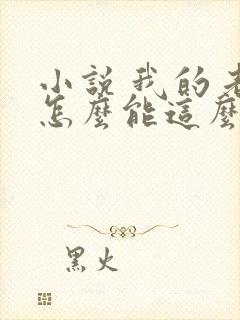 小說我的老
怎麼能這麼
黑火